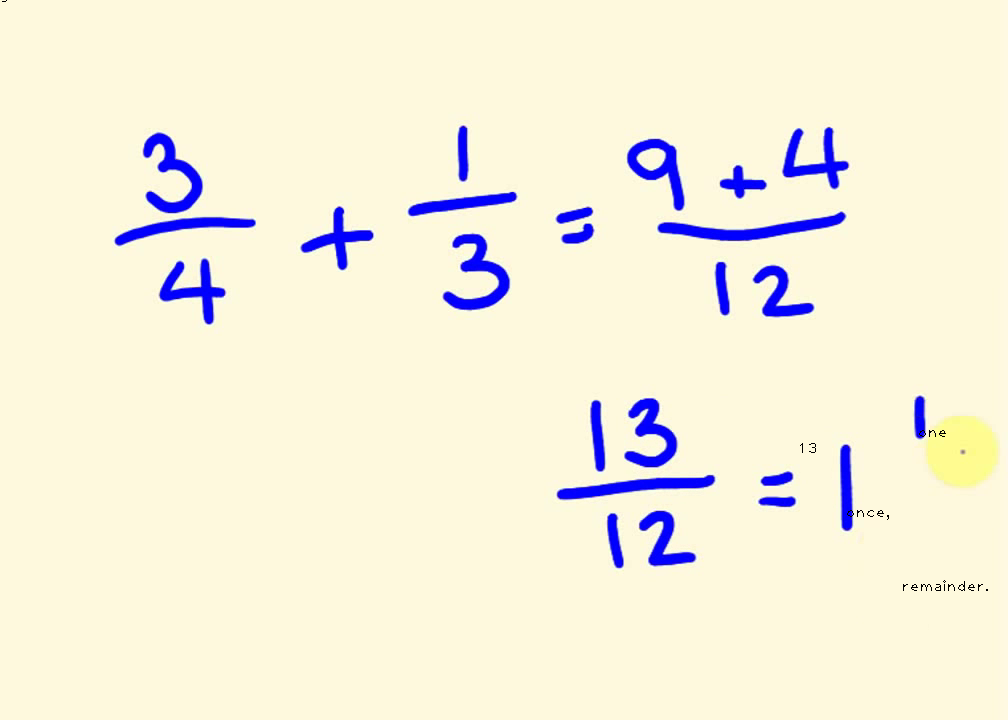 3/4 + 1/3 = 9 + 4/12
13/12 = 1 1
13
one
once,
remainder.